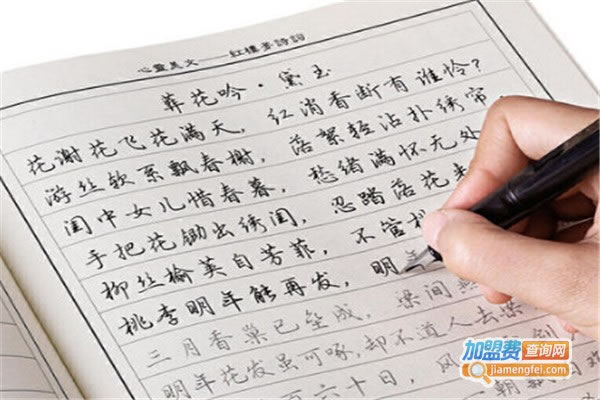 心靈美文——紅樓夢詩詞
葬花吟·黛玉
花谢花飞花满天，红消香断有谁怜？
游丝软系飘春榭，落絮轻沾扑绣帘，
闺中女儿惜春暮，愁绪满怀无处
手把花锄出绣闺，忍踏落花来
柳丝榆荚自芳菲，不管
桃李明年能再发，明年
三月香巢已垒成，梁间燕
明年花发虽可啄，却不道人去梁
百六十日，风 剑
一朝飘泊难
加盟费查询网
jiamengfei.com